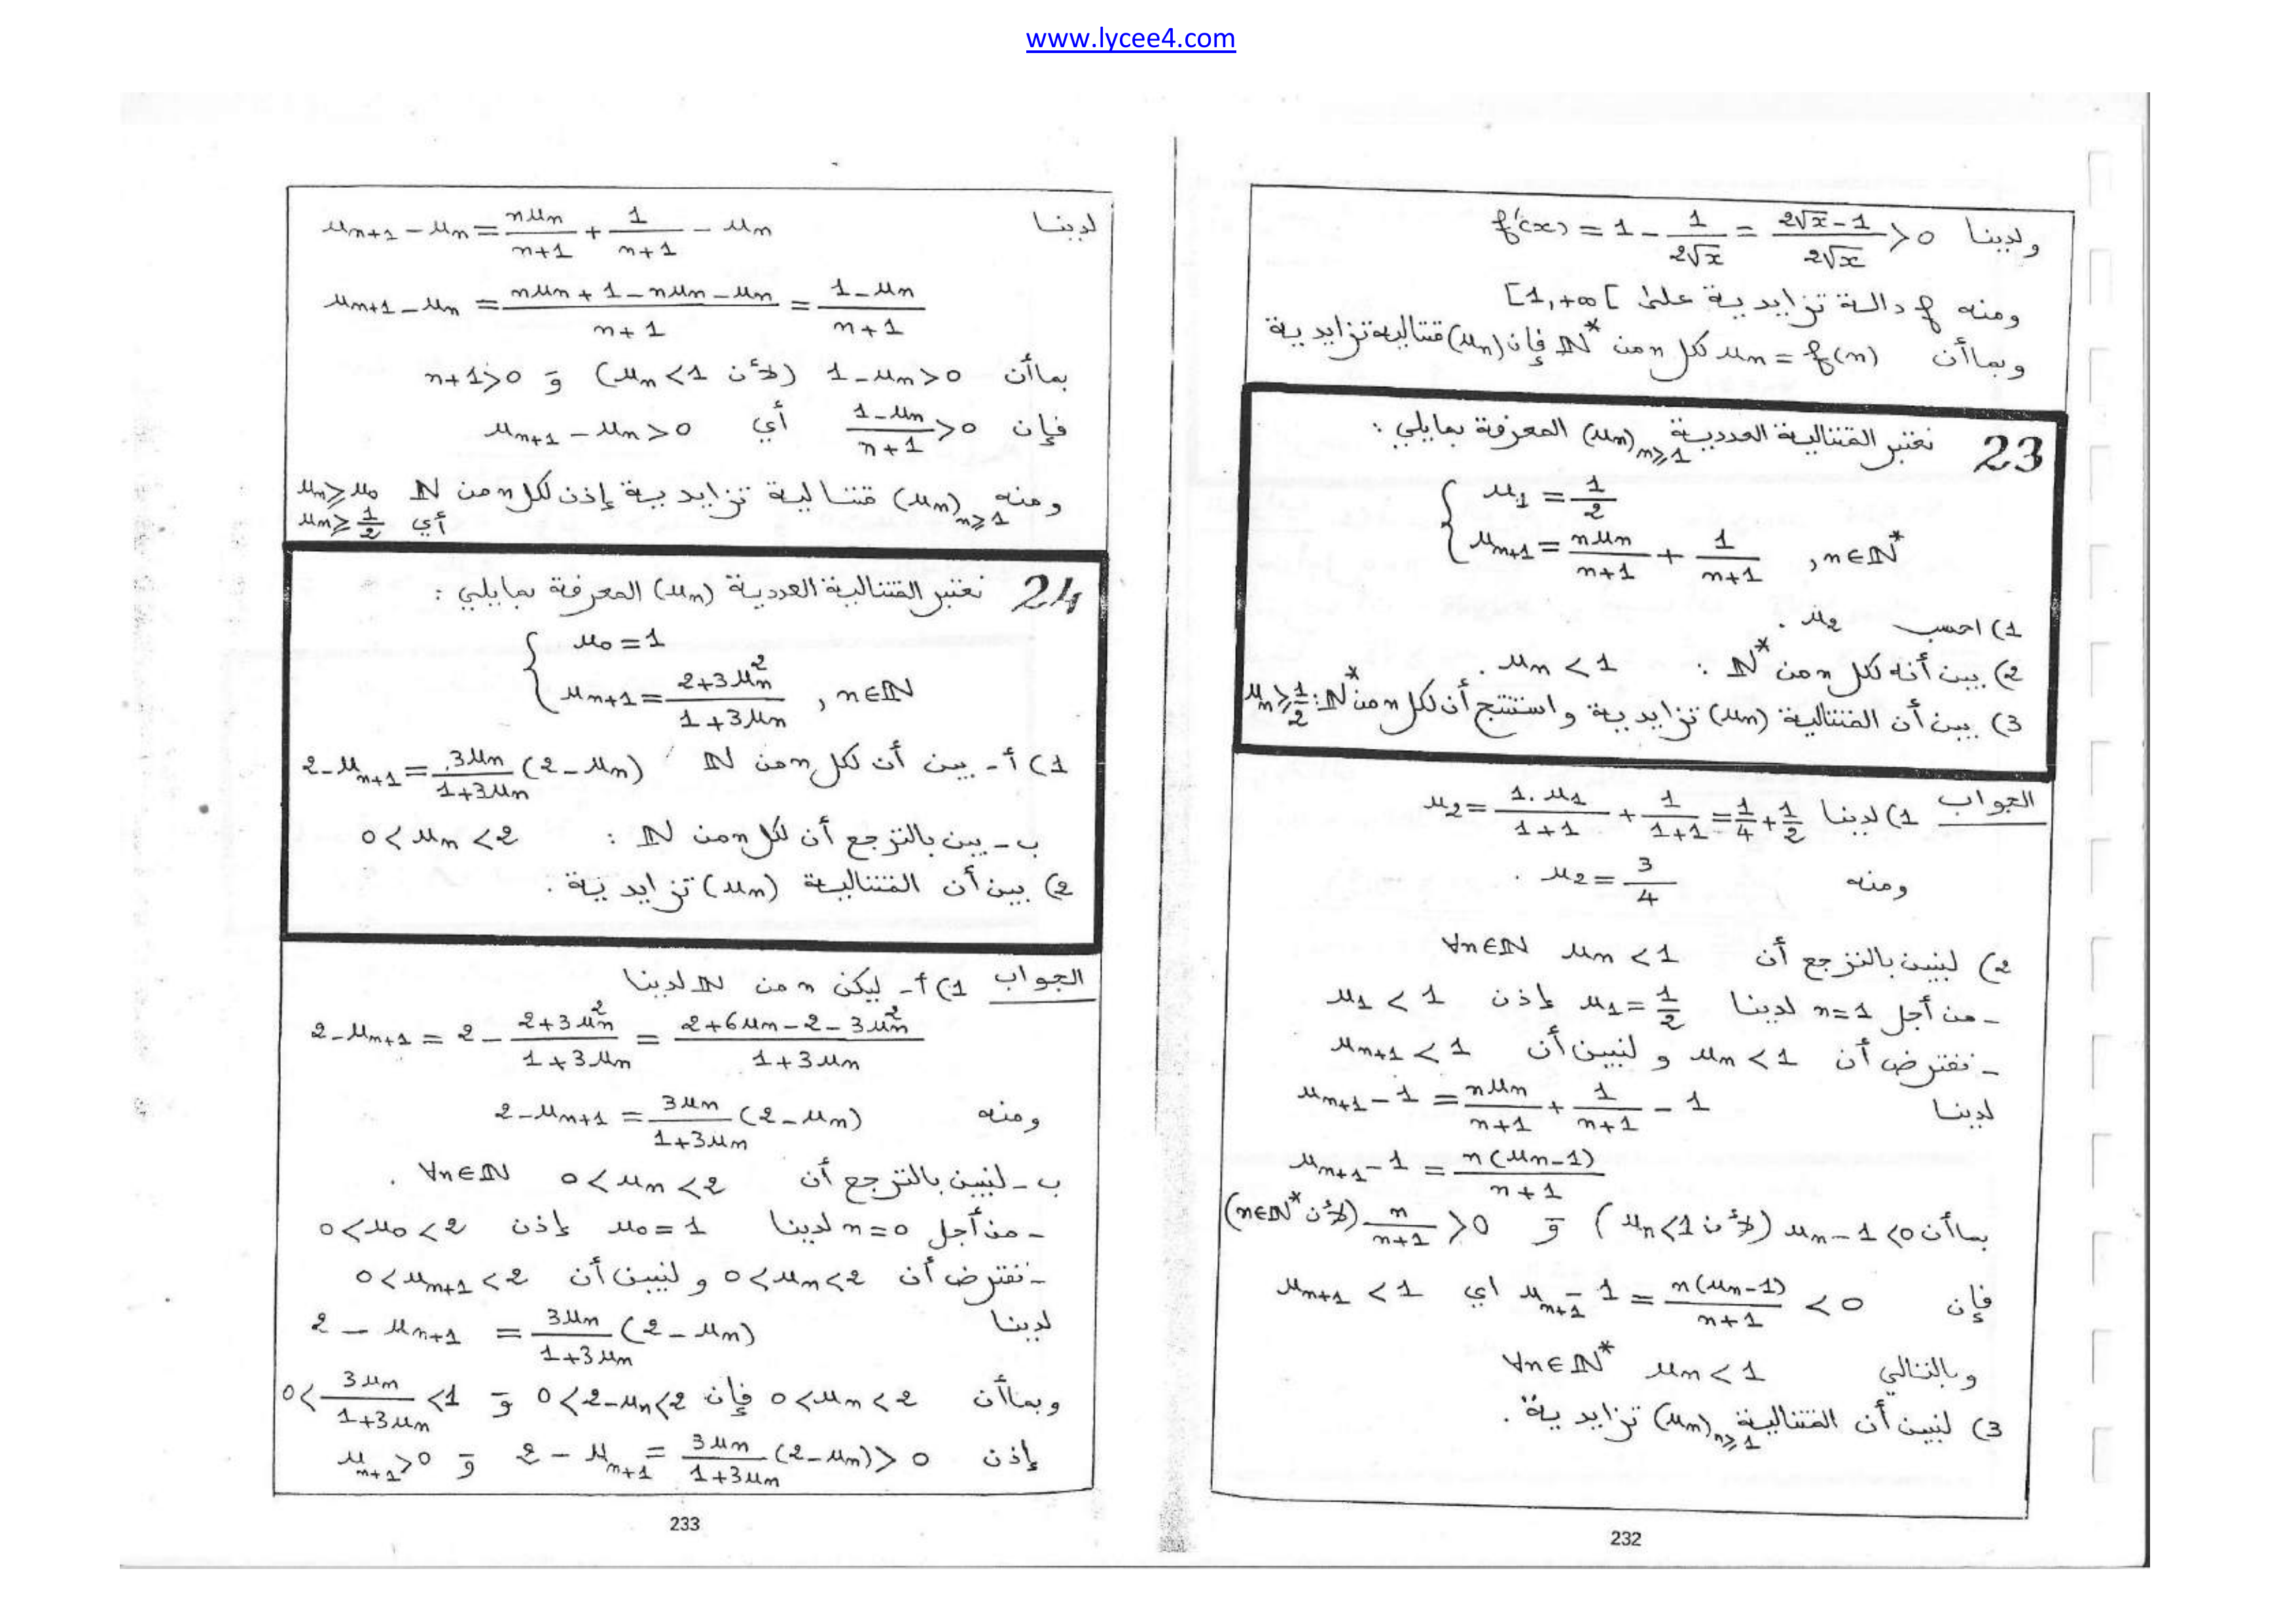 www.lycee4.com
ولدينا f'(x) = 1 - 1/(2√x) = (2√x - 1)/(2√x) > 0
ومنه f دالة تزايدية على [1,+∞[
وبما أن u_n = f(n) لكل n من ℕ* فإن (u_n) متتالية تزايدية
23 نعتبر المتتالية العددية (u_n)_{n≥1} المعرفة بمايلي :
{ u_1 = 1/2
u_{n+1} = nu_n/(n+1) + 1/(n+1) , n∈ℕ*
1) احسب u_2 .
2) بين أنه لكل n من ℕ* : u_n < 1 .
3) بين أن المتتالية (u_n) تزايدية واستنتج أن لكل n من ℕ* : u_n ≥ 1/2
الجواب 1) لدينا u_2 = 1.u_1/(1+1) + 1/(1+1) = 1/4 + 1/2
ومنه u_2 = 3/4 .
2) لنبين بالترجع أن u_n < 1 ∀n∈ℕ
- من أجل n=1 لدينا u_1 = 1/2 إذن u_1 < 1
- نفترض أن u_n < 1 و لنبين أن u_{n+1} < 1
لدينا u_{n+1} - 1 = nu_n/(n+1) + 1/(n+1) - 1
u_{n+1} - 1 = n(u_n - 1)/(n+1)
بما أن u_n - 1 < 0 (لأن u_n < 1) و n/(n+1) > 0 (لأن n∈ℕ*)
فإن u_{n+1} - 1 = n(u_n - 1)/(n+1) < 0 اي u_{n+1} < 1
وبالتالي u_n < 1 ∀n∈ℕ*
3) لنبين أن المتتالية (u_n)_{n≥1} تزايدية .
232
لدينا u_{n+1} - u_n = nu_n/(n+1) + 1/(n+1) - u_n
u_{n+1} - u_n = (nu_n + 1 - nu_n - u_n)/(n+1) = (1 - u_n)/(n+1)
بما أن 1 - u_n > 0 (لأن u_n < 1) و n+1 > 0
فإن (1 - u_n)/(n+1) > 0 أي u_{n+1} - u_n > 0
ومنه (u_n)_{n≥1} متتالية تزايدية إذن لكل n من ℕ u_n ≥ u_0
أي u_n ≥ 1/2
24 نعتبر المتتالية العددية (u_n) المعرفة بمايلي :
{ u_0 = 1
u_{n+1} = (2+3u_n²)/(1+3u_n) , n∈ℕ
1) أ- بين أن لكل n من ℕ 2 - u_{n+1} = 3u_n/(1+3u_n) (2 - u_n)
ب- بين بالترجع أن لكل n من ℕ : 0 < u_n < 2
2) بين أن المتتالية (u_n) تزايدية .
الجواب 1) أ- ليكن n من ℕ لدينا
2 - u_{n+1} = 2 - (2+3u_n²)/(1+3u_n) = (2+6u_n-2-3u_n²)/(1+3u_n)
ومنه 2 - u_{n+1} = 3u_n/(1+3u_n) (2 - u_n)
ب- لنبين بالترجع أن 0 < u_n < 2 ∀n∈ℕ .
- من أجل n=0 لدينا u_0 = 1 إذن 0 < u_0 < 2
- نفترض أن 0 < u_n < 2 و لنبين أن 0 < u_{n+1} < 2
لدينا 2 - u_{n+1} = 3u_n/(1+3u_n) (2 - u_n)
وبما أن 0 < u_n < 2 فإن 0 < 2-u_n < 2 و 0 < 3u_n/(1+3u_n) < 1
إذن 2 - u_{n+1} = 3u_n/(1+3u_n) (2-u_n) > 0 و u_{n+1} > 0
233